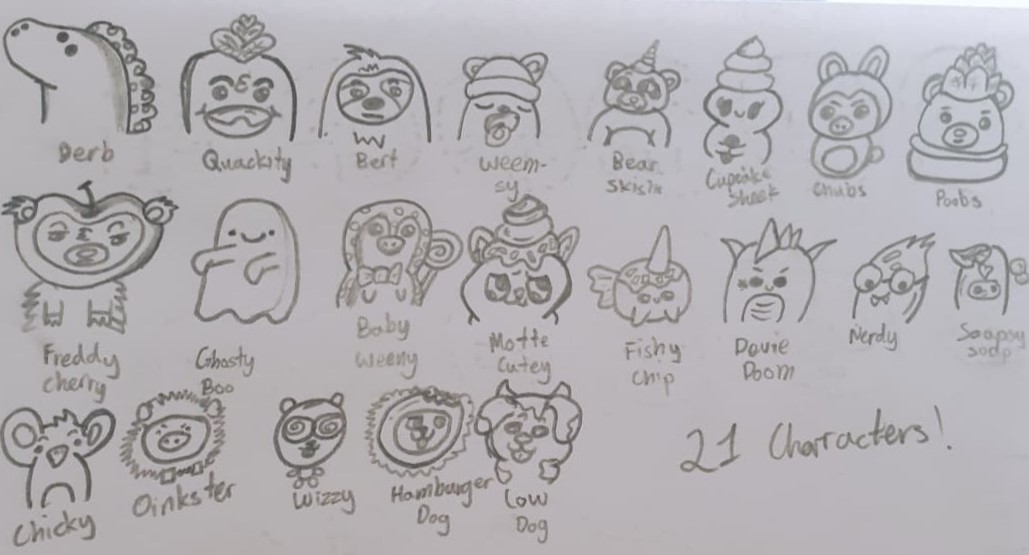 Derb
Quackity
Bert
Weem-
sy
Bear
Skishi
Cupcake
Sheek
Chubs
Poobs
Freddy
Cherry
Ghosty
Boo
Baby
Weeny
Motte
Cutey
Fishy
Chip
Dovie
Doom
Nerdy
Soapsy
soap
Chicky
Oinkster
Wizzy
Hamburger
Dog
Cow
Dog
21 Characters!